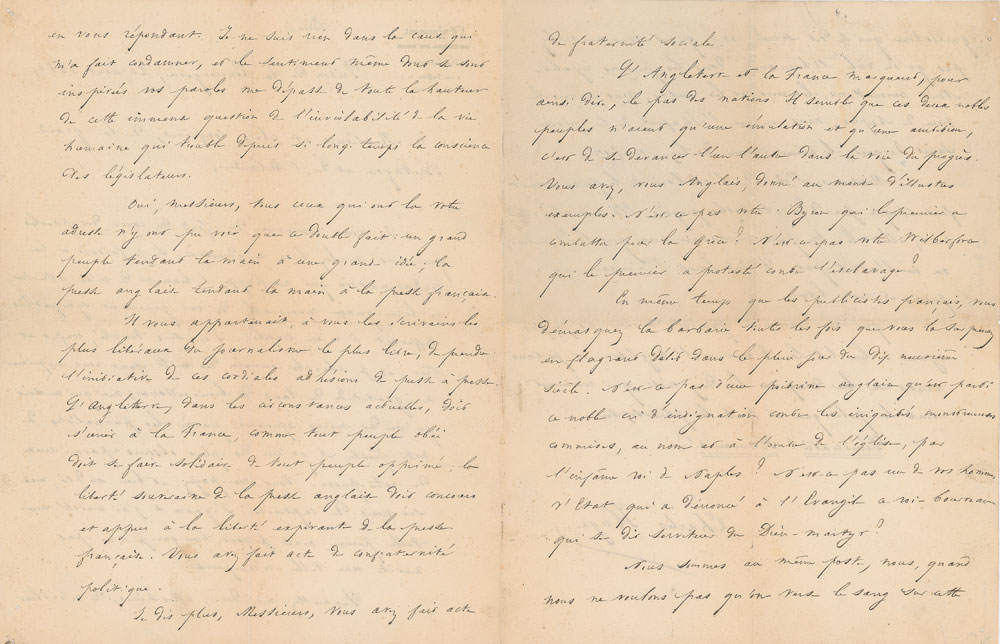 en vous répondant. Je ne suis rien dans la cause qui
m'a fait condamner, et le sentiment même dont se sont
inspirées vos paroles me dépasse de toute la hauteur
de cette immense question de l'inviolabilité de la vie
humaine qui trouble depuis si long-temps la conscience
des législateurs.
Oui, Messieurs, tous ceux qui ont lu votre
adresse n'y ont pu voir que ce double fait: un grand
peuple tendant la main à une grande idée; la
presse anglaise tendant la main à la presse française.
Il vous appartenait, à vous les écrivains les
plus libéraux du journalisme le plus libre, de prendre
l'initiative de ces cordiales adhésions de presse à presse.
L'Angleterre, dans les circonstances actuelles, doit
s'unir à la France, comme tout peuple
doit se faire solidaire de tout peuple opprimé: la
liberté souveraine de la presse anglaise doit concours
et appui à la liberté expirante de la presse
française. Vous avez fait acte de confraternité
politique.
Je dis plus, Messieurs, vous avez fait acte
de fraternité sociale.
L'Angleterre et la France marquent, pour
ainsi dire, le pas des nations. Il semble que ces deux nobles
peuples n'aient qu'une émulation et qu'une ambition,
c'est de se devancer l'un l'autre dans la voie du progrès.
Vous avez, vous Anglais, donné au monde d'illustres
exemples. N'est-ce pas votre Byron qui le premier a
combattu pour la Grèce? N'est-ce pas votre Wilberforce
qui le premier a protesté contre l'esclavage?
En même temps que les publicistes français, vous
démasquez la barbarie toutes les fois que vous la surprenez
en flagrant délit dans le plein jour du dix neuvième
siècle. N'est-ce pas d'une poitrine anglaise qu'est parti
ce noble cri d'indignation contre les iniquités monstrueuses
commises, au nom et à l'ombre de l'église, par
l'infâme roi de Naples? N'est-ce pas un de vos hommes
d'Etat qui a dénoncé à l'Evangile ce roi-bourreau
qui se dit serviteur du Dieu-martyr?
Nous sommes au même poste, nous, quand
nous ne voulons pas qu'on verse le sang sur cette